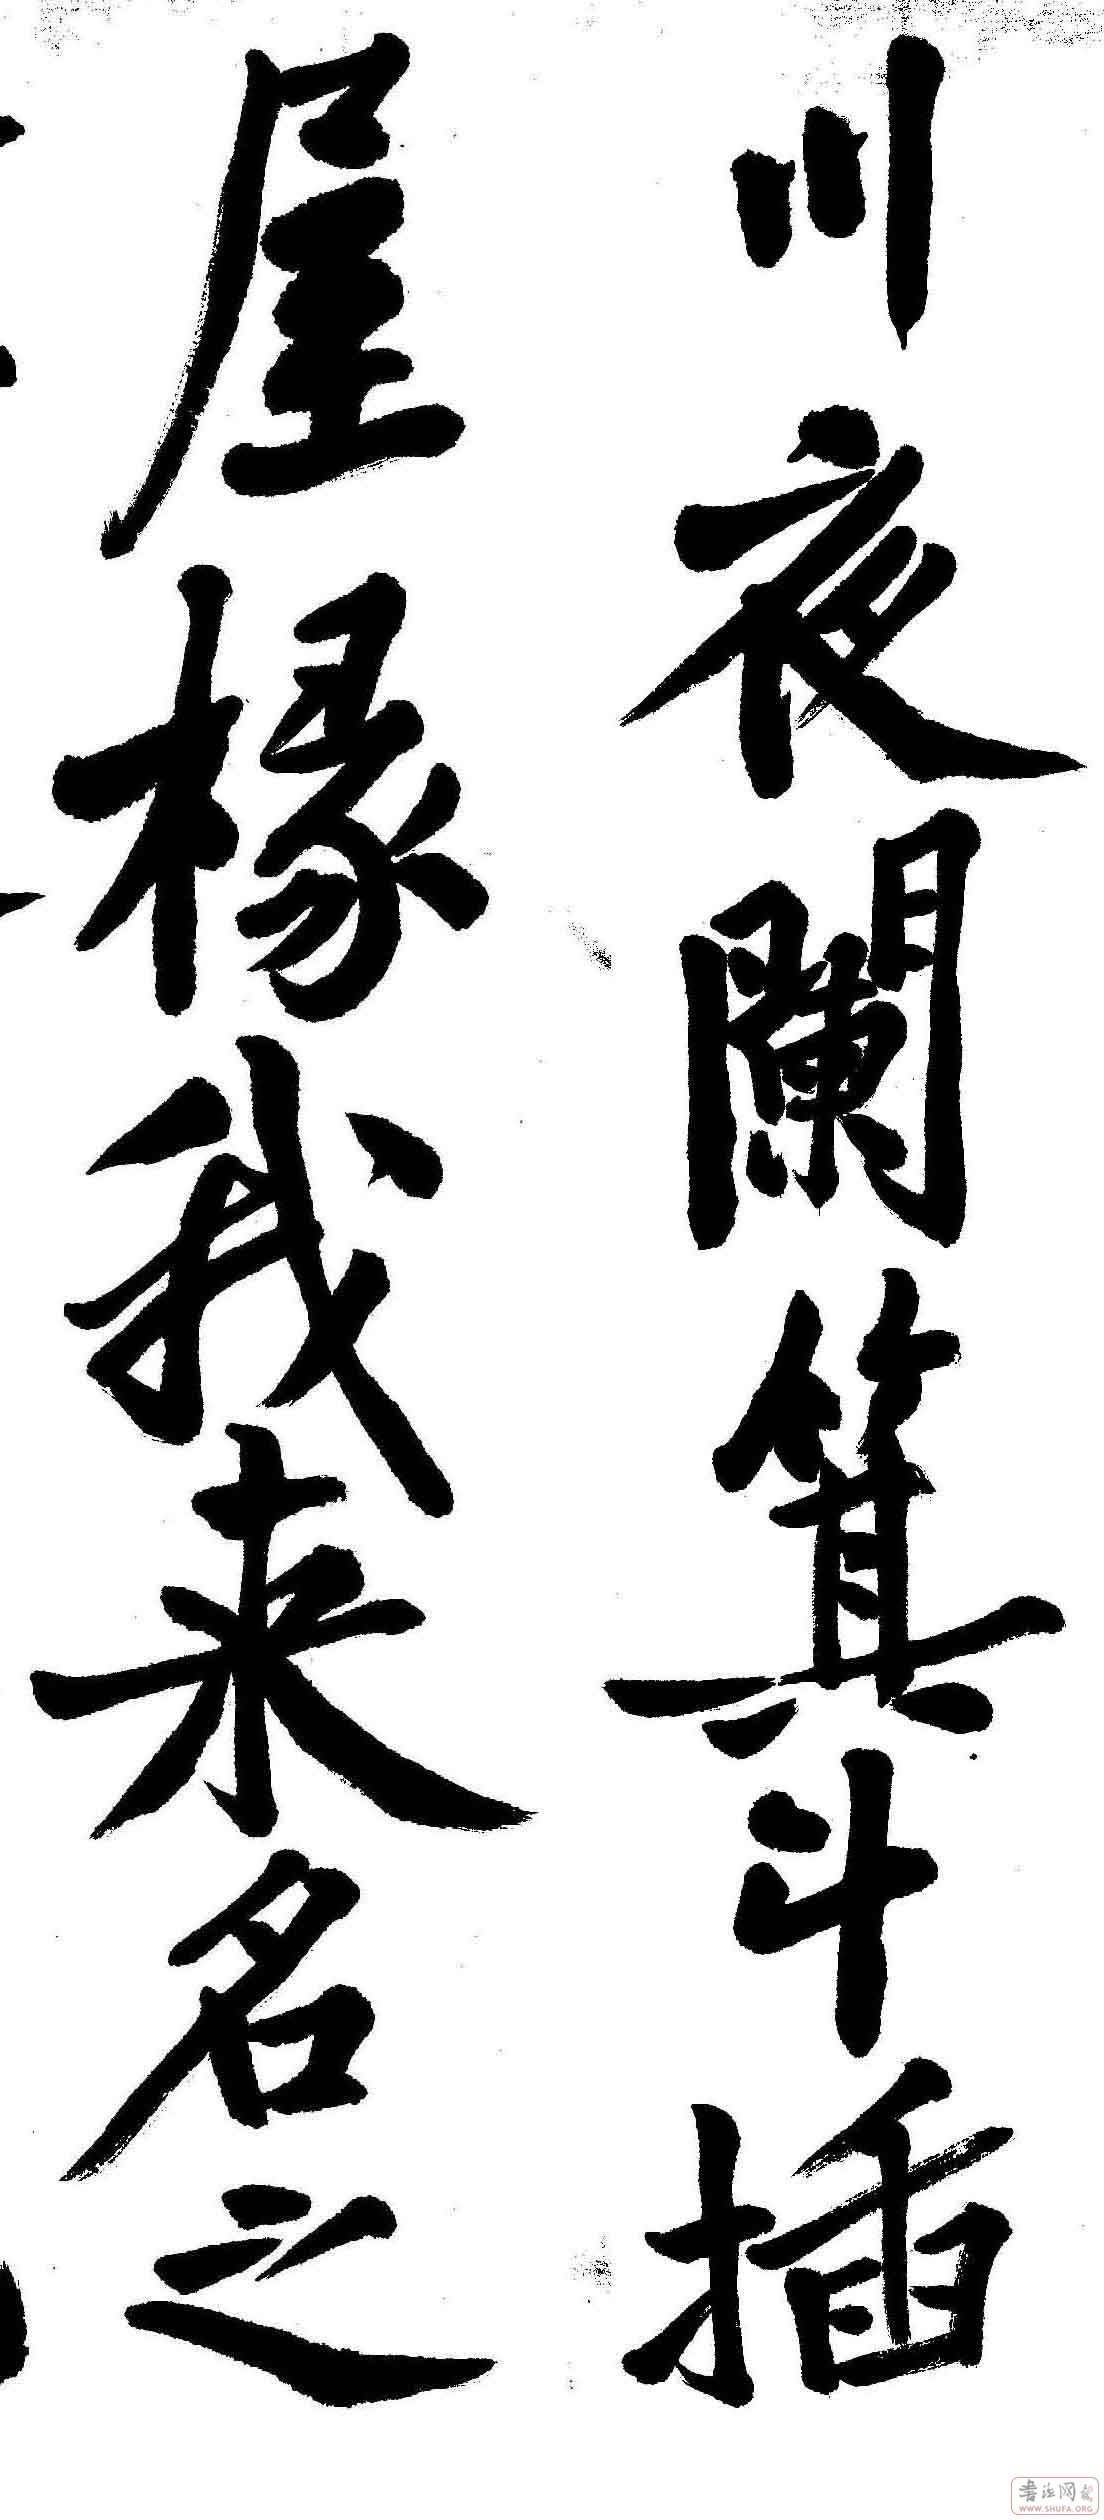 川夜闌箕斗插
屋椽我来名之
書法网
WWW.SHUFA.ORG